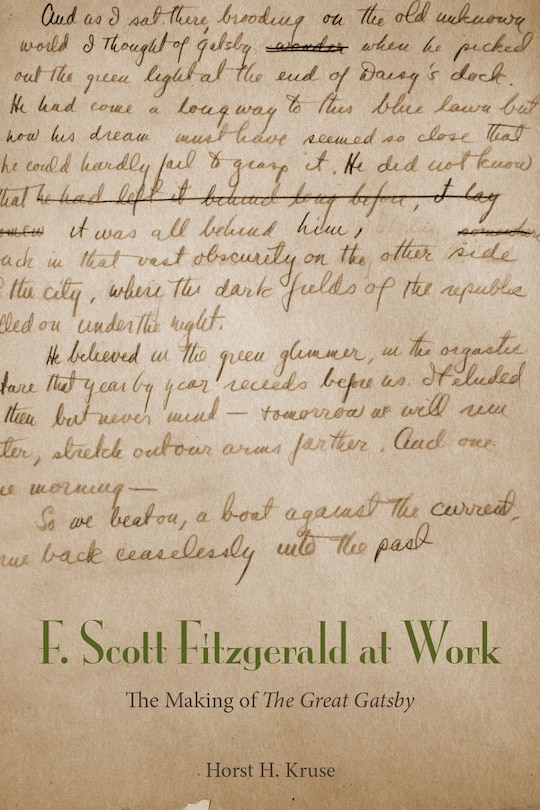 And as I sat there, brooding on the old unknown
world I thought of Gatsby wonder when he picked
out the green light at the end of Daisy's dock.
He had come a long way to this blue lawn but
now his dream must have seemed so close that
he could hardly fail to grasp it. He did not know
that he had left it behind long before, it lay
it was all behind him,
ack in that vast obscurity on the other side
the city, where the dark fields of the republic
lled on under the night.
He believed in the green glimmer, in the orgastic
ture that year by year receeds before us. It eluded
then but never mind — tomorrow we will run
ter, stretch out our arms farther. And one
ne morning —
So we beat on, a boat against the current,
rne back ceaselessly into the past
F. Scott Fitzgerald at Work
The Making of The Great Gatsby
Horst H. Kruse